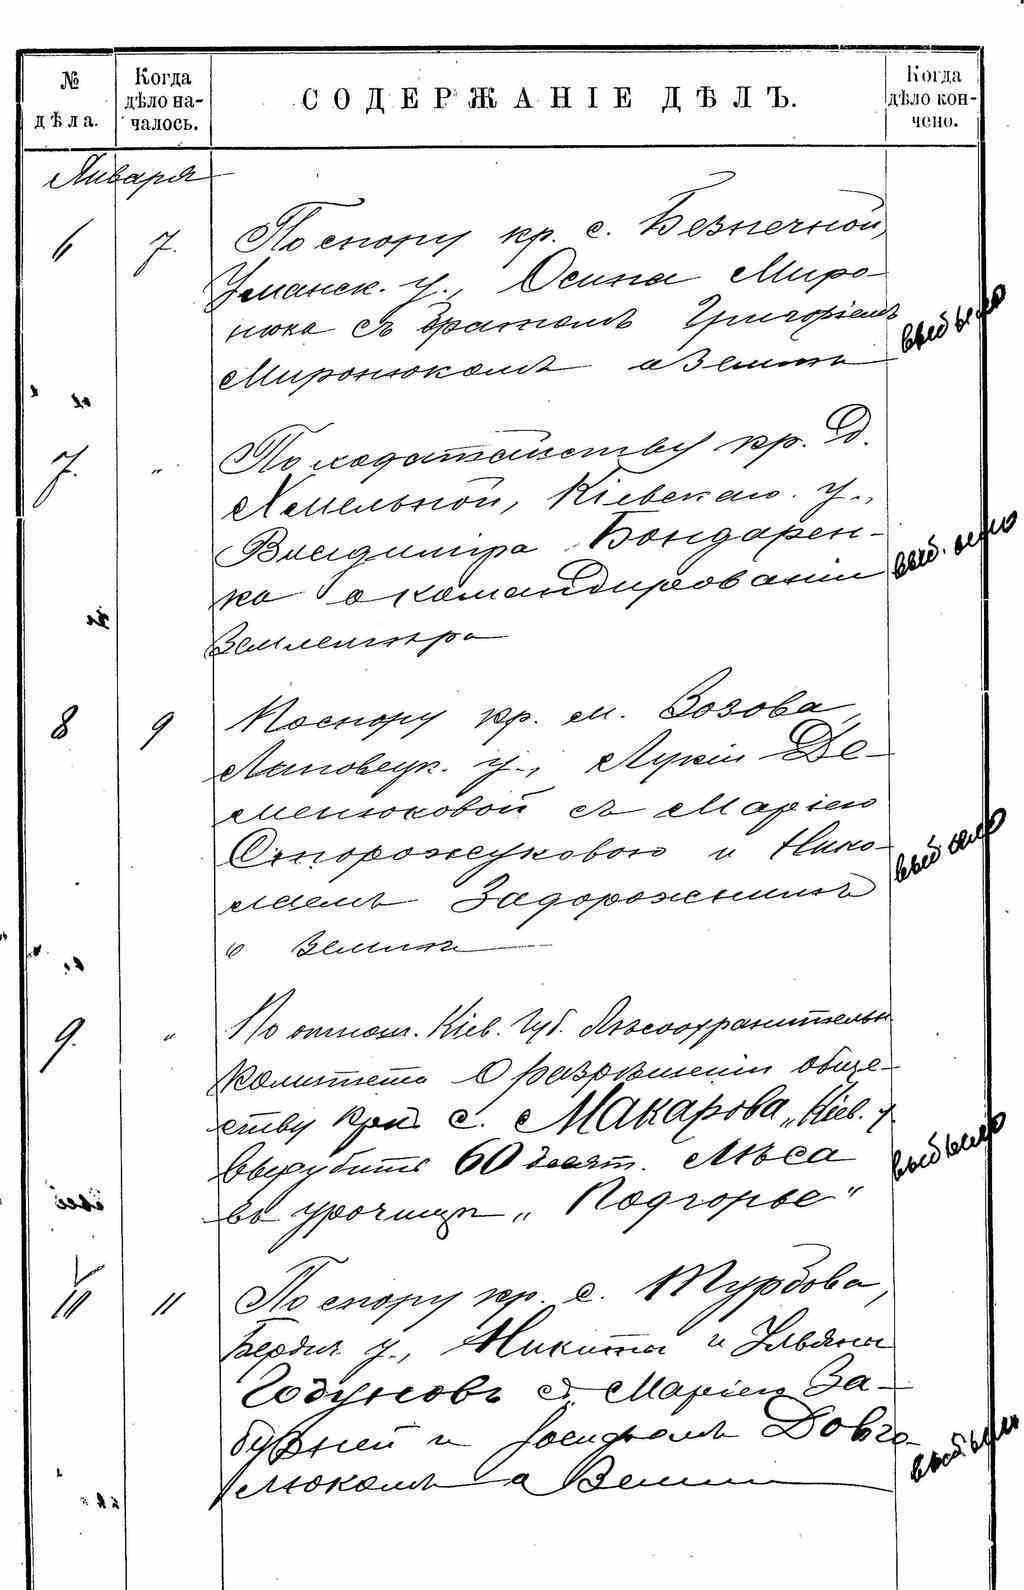 № дѣла.
Когда дѣло началось.
СОДЕРЖАНІЕ ДѢЛЪ.
Когда дѣло кончено.
Января
6 7. По спору кр. с. Безпечной,
Уманск. у., Осипа Миро-
нюка съ братомъ Григоріемъ
Миронюкомъ о землѣ
выбыло
7. " По ходатайству кр. д.
Хмельной, Кіевскаго у.,
Владиміра Бондарен-
ко о командированіи
землемѣра
выбыло
8 9 По спору кр. м. Зозова,
Липовецк. у., Лукіи Де-
менюковой съ Маріею
Сторожуковою и Нико-
лаемъ Задорожнимъ
о землѣ
выбыло
9. " По отнош. Кіев. Губ. Лѣсоохранительн.
Комитета о разрѣшеніи обще-
ству крн. с. Макарова, Кіев. у.
вырубить 60 десят. лѣса
въ урочищѣ „Подгорье"
выбыло
10 11 По спору кр. с. Турбова,
Бердич. у., Никиты и Ульяны
Годуновъ съ Маріею За-
бузней и Іосифомъ Довга-
люкомъ о земли
выбыло